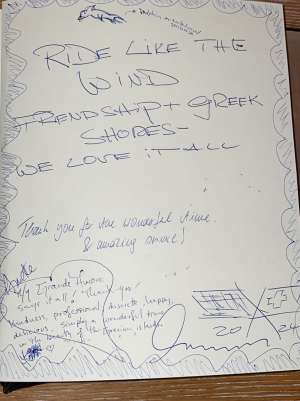 RIDE LIKE THE
WIND
FRENDSHIP + GREEK
SHORES-
WE LOVE IT ALL
Thank you for the wonderful time
& amazing service!
says it all! Thank you!
Kindness, professional, discrete, happy,
delicious, simply a wonderful time
in the beauty of the Grecian islands
20 24